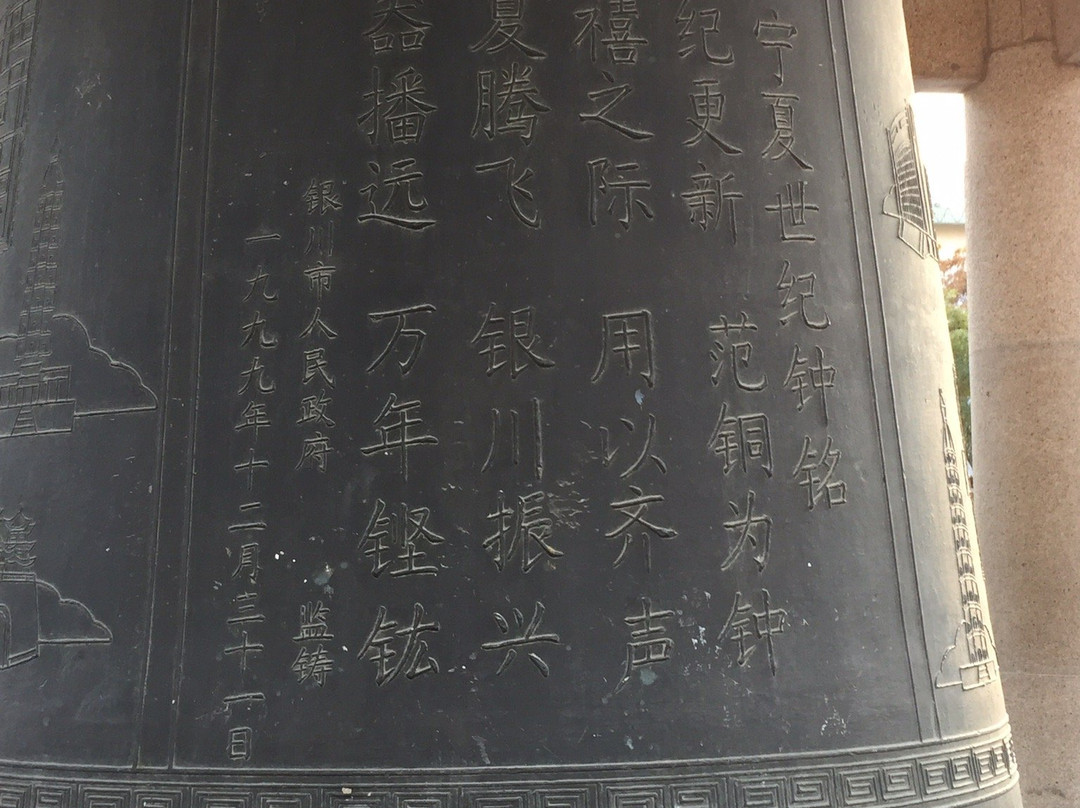 宁夏世纪钟铭
纪更新 范铜为钟
禧之际 用以齐声
夏腾飞 银川振兴
器播远 万年铿𫟹
银川市人民政府 监铸
一九九九年十二月三十一日